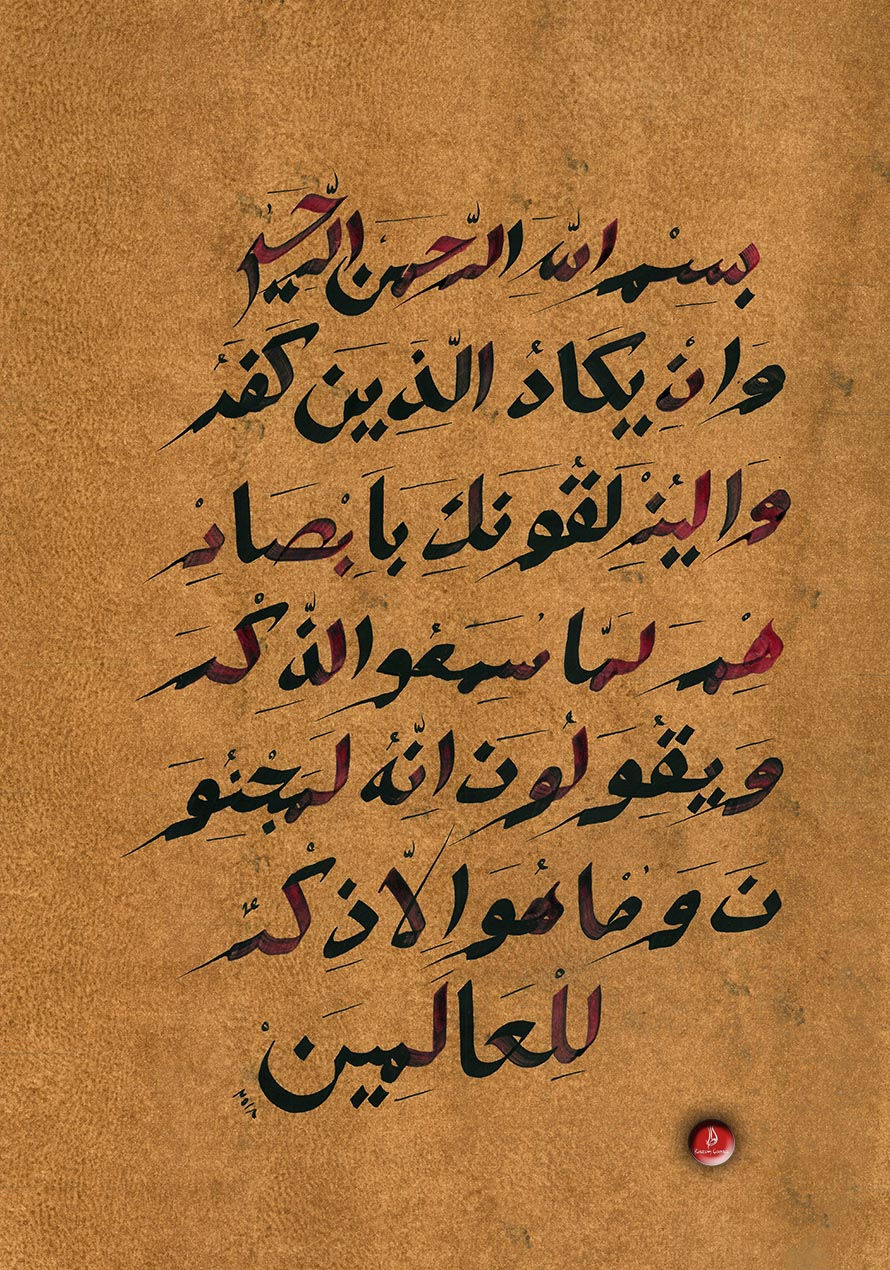 بِسْمِ اللّٰهِ الرَّحْمٰنِ الرَّحِيمِ
وَاِنْ يَكَادُ الَّذِينَ كَفَرُ
والَيُزْلِقُونَكَ بَاَبْصَارِ
هِمْ لَمَّا سَمِعُوالذِّكْرَ
وَيَقُولُونَ اِنَّهُ لَمَجْنُو
نَ وَمَا هُوَ اِلَّا ذِكْرٌ
لِلْعَالَمِينَ